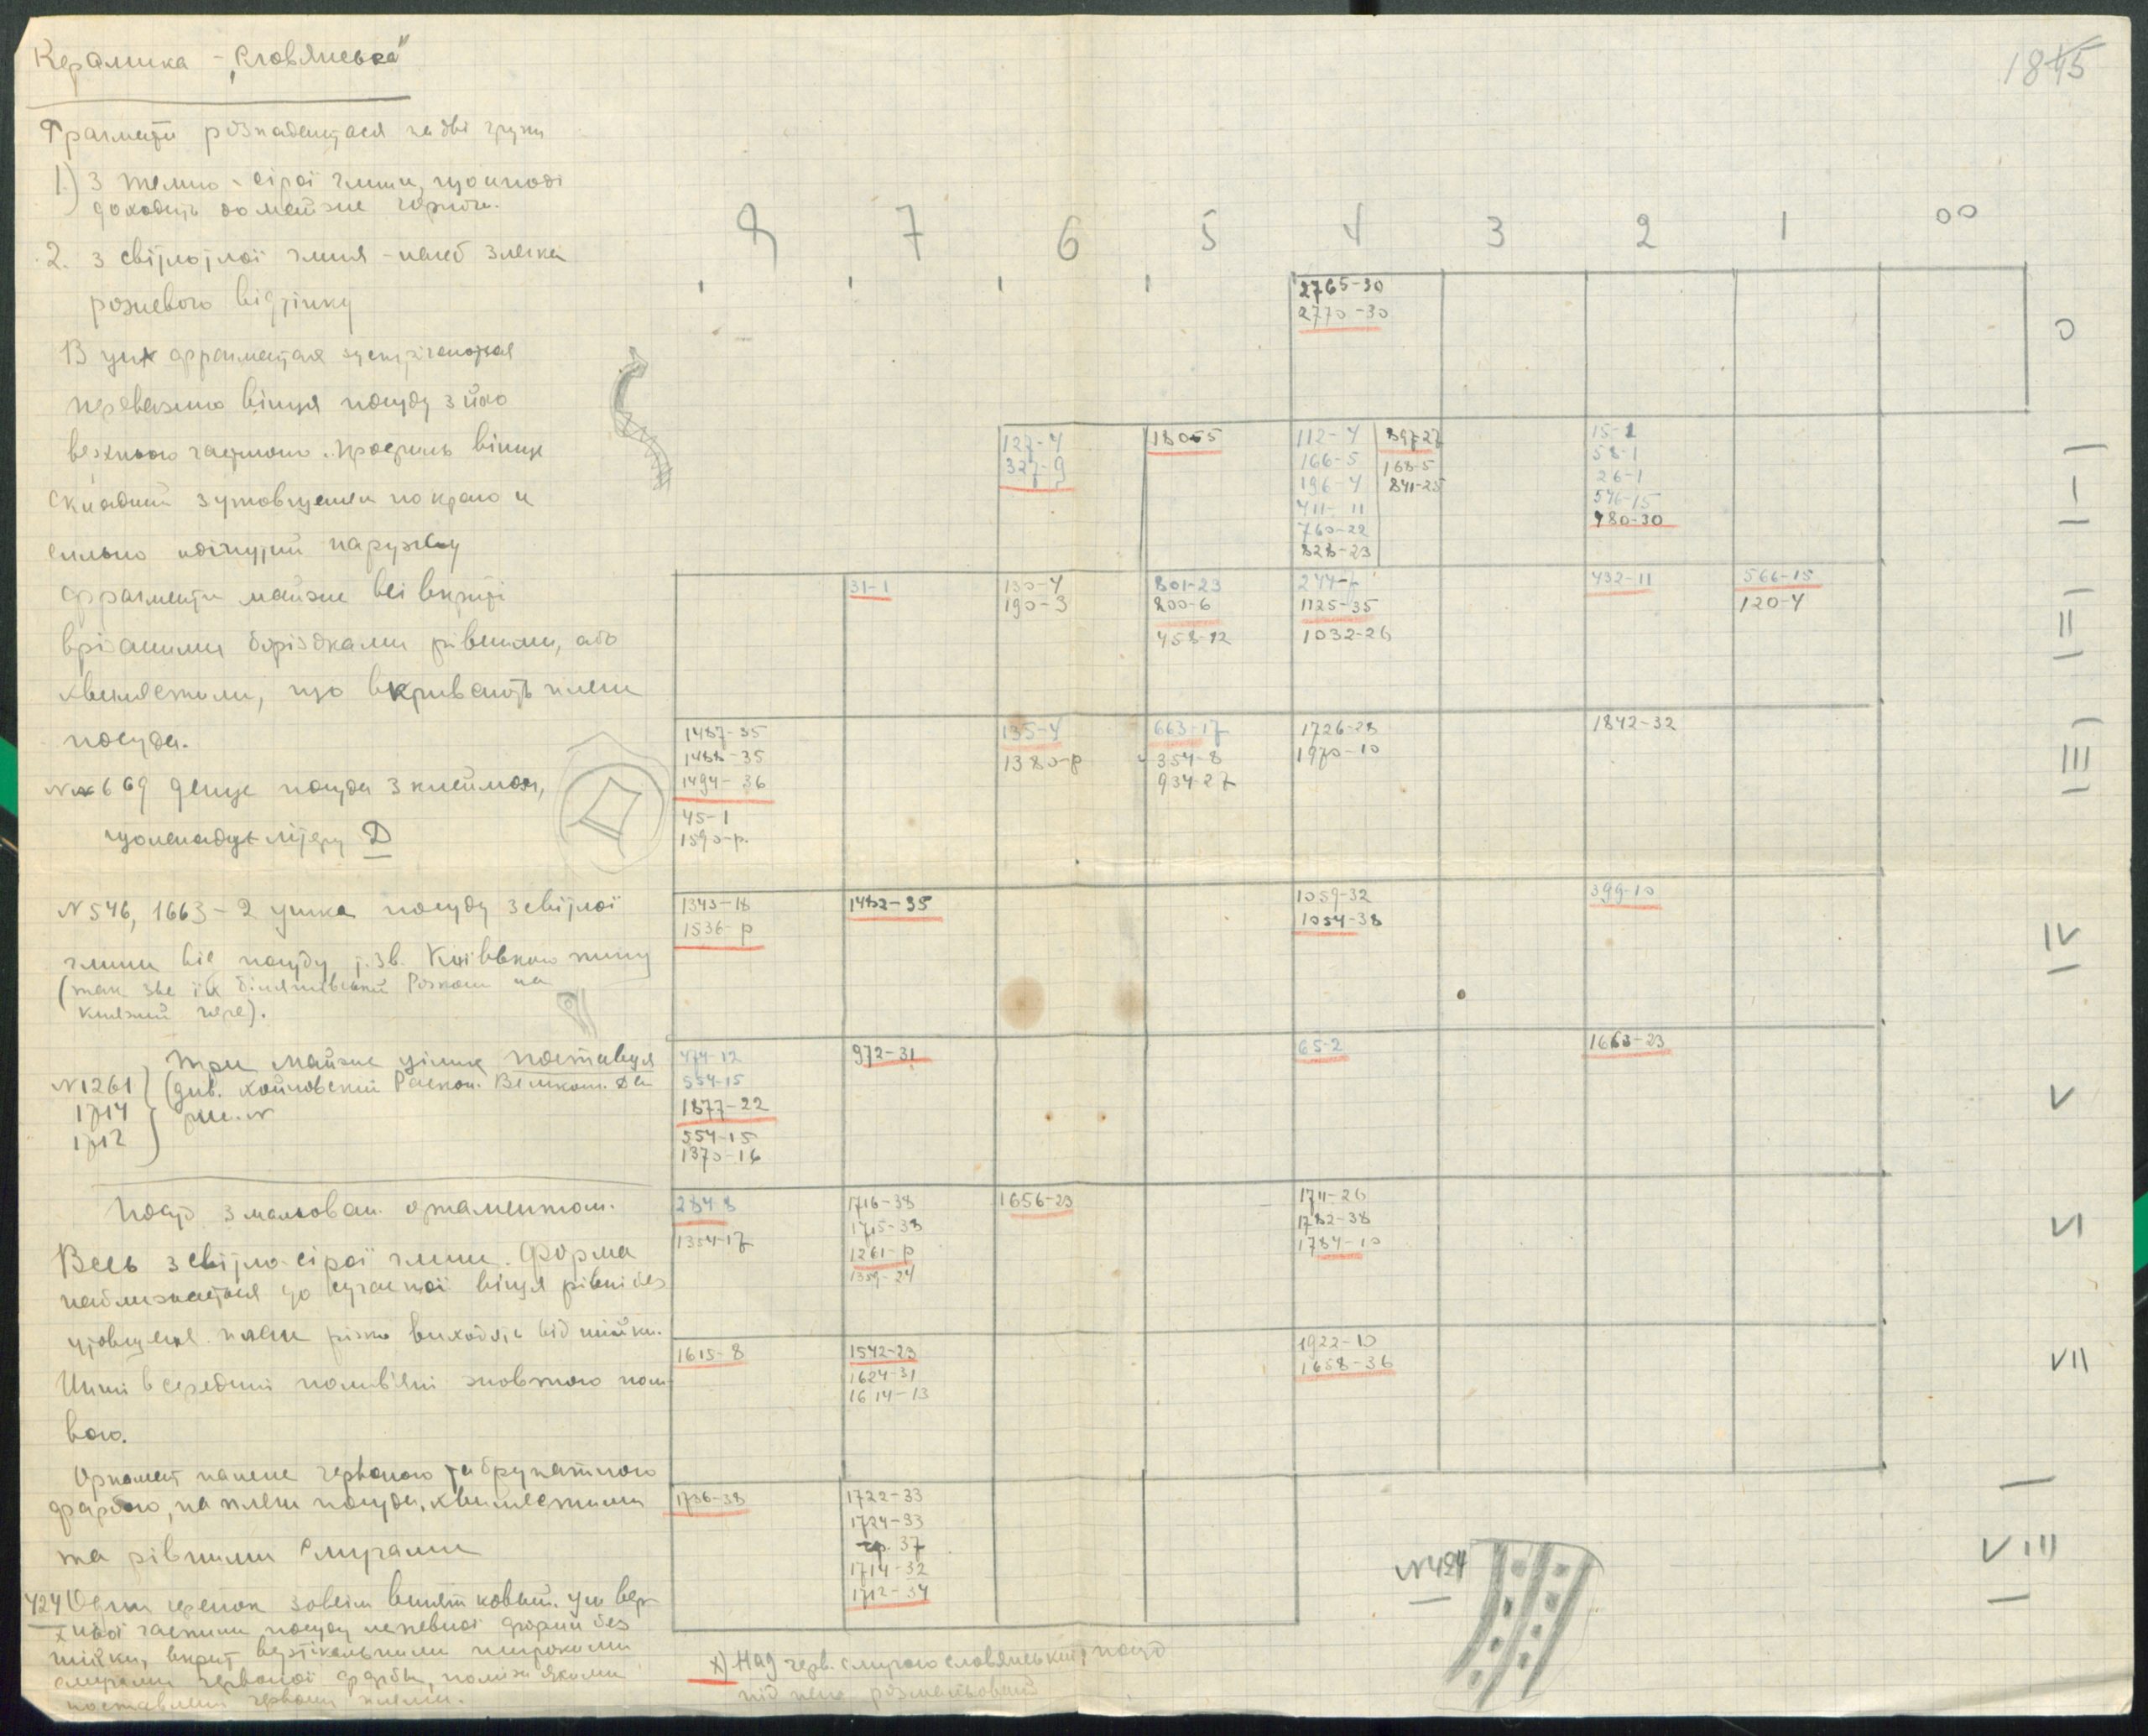 Кераміка – „Словянська"
1845
Фрагменти розпадаються на дві групи
1.) З темно-сірої глини, що иноді
доходить до майже чорної.
2. З світлої глини – неначе злегка
рожевого відтінку
В цих фрагментах зустрічаються
переважно вінця посуду з його
верхньою частиною. Профіль вінця
складний з утовщенням по краю и
сильно одігнутий наружу
Фрагменти майже всі вкриті
врізаними борізками рівними, або
хвилястими, що вкривають плечи
посуди.
№ 669 денце посуди з клеймом,
що нагадує літеру Д
№ 546, 1663 – 2 ушка посуду з світлої
глини від посуду т. зв. Київського типу
(так зве їх Біляшівський Розкопи на
Княжій горе).
№1261
1714
1712
Три майже цілих поставця
(див. Хойновский Раскоп. Великокн. Дв
рис. №
Посуд з мальован. орнаментом.
Весь з світло-сірої глини. Форма
наближається до сучасної вінця рівні без
утовщення плечи різко виходять від шийки.
Инші в середині полив'яні жовтою поли
вою.
Орнамент нанесе червоною та брунатною
фарбою, на плечи посуди, хвилястими
та рівними смугами
424 Один черепок зовсім виняттковий. Це вер
хньої частини посуду непевної форми без
шийки, вкрит вертікальними широкими
смугами червоної фарби, поміж якими
поставлені червоні плями.
8 7 6 5 4 3 2 1 00
2765-30
2770-30
0
127-4
327-9
1805-5
112-4
166-5
196-4
411-11
760-22
828-23
897-27
168-5
841-25
15-1
58-1
26-1
546-15
780-30
I
31-1
130-4
190-3
801-23
200-6
458-12
244-7
1125-35
1032-26
432-11
566-15
120-4
II
1487-35
1488-35
1494-36
45-1
1590-р.
135-4
1380-р
663-17
354-8
934-27
1726-28
1970-10
1842-32
III
1343-18
1536-р
1482-35
1059-32
1054-38
399-10
IV
474-12
554-15
1877-22
554-15
1370-16
972-31
65-2
1663-23
V
284-8
1354-17
1716-38
1715-38
1261-р
1359-24
1656-23
1711-26
1782-38
1784-10
VI
1615-8
1542-23
1624-31
1614-13
1922-10
1658-36
VII
1736-38
1722-33
1724-33
гр. 37
1714-32
1712-34
VIII
№424
х) Над черв. смугою словянський посуд
під нею розмальований